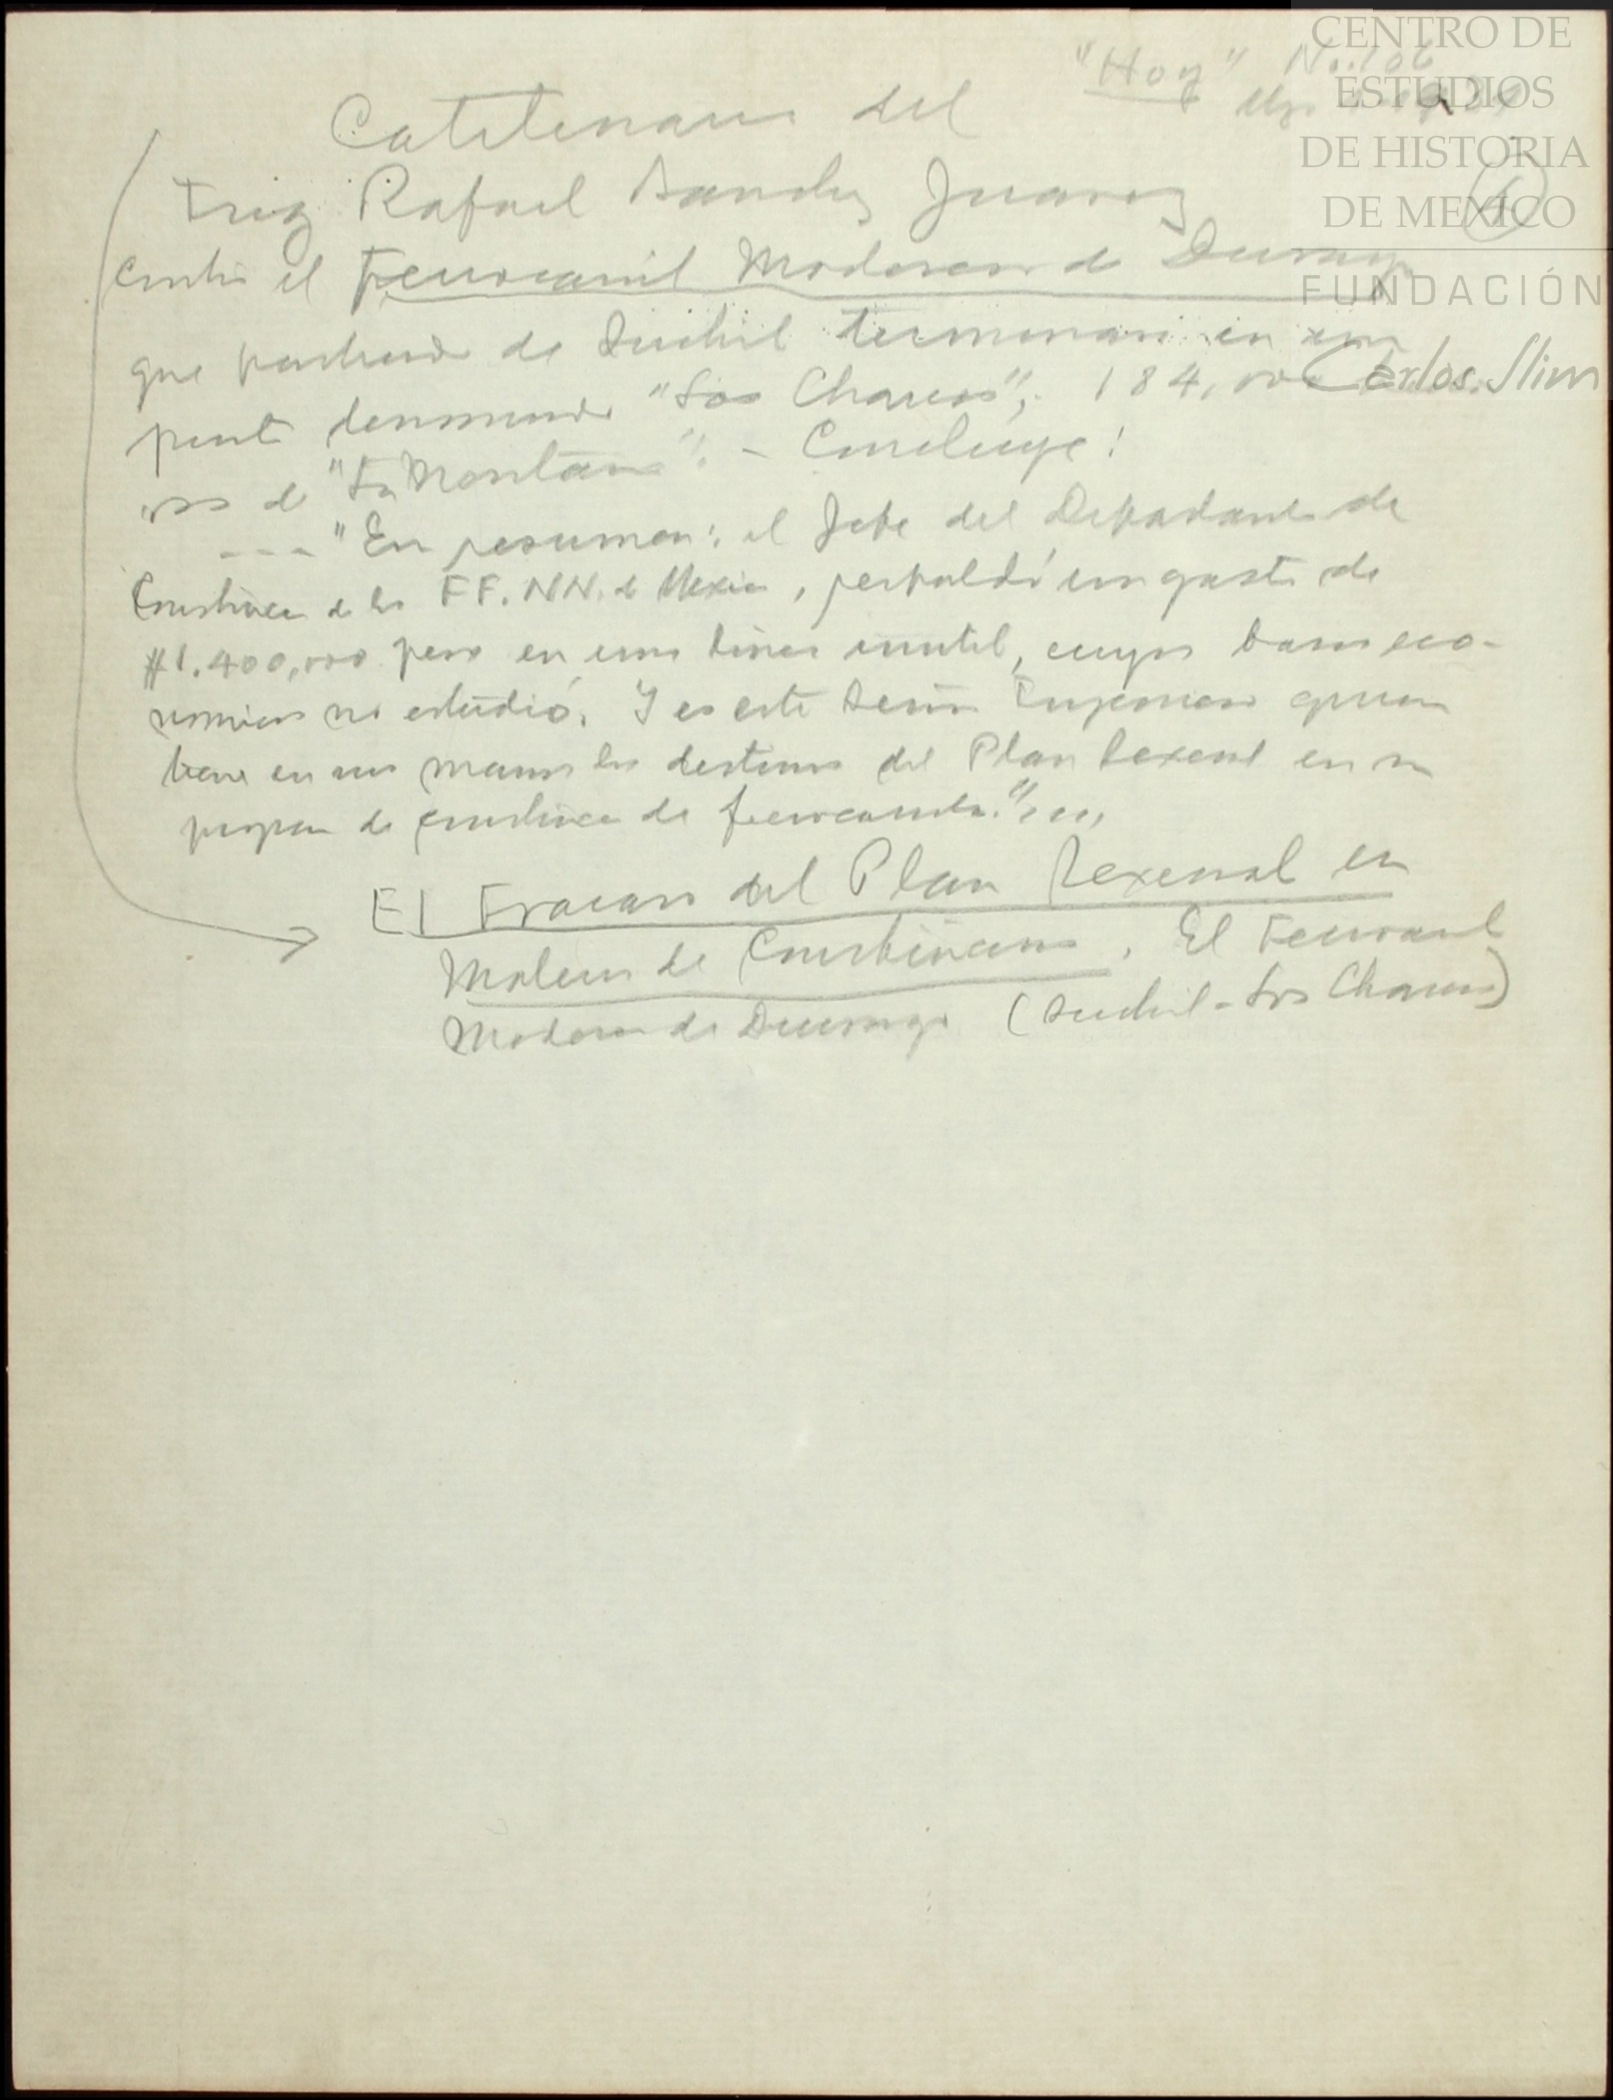 "Hoy" No. 106
CENTRO DE
ESTUDIOS
DE HISTORIA
DE MEXICO
FUNDACIÓN
Carlos Slim
Catilinaria del
Ing Rafael Sanchez Juarez
contra el Ferrocarril Maderero de Durango
que partiendo de Suchil terminara en un
punto denominado "Los Charcos", 184,000
de "La Montaña". - Concluye:
--- "En resumen: el Jefe del Departamento de
Construccion de los FF.NN. de Mexico, respaldó un gasto de
$1.400,000 pesos en una linea inutil, cuyas bases eco-
nomicas no estudió. Y es este Señor Ingeniero quien
tiene en sus manos los destinos del Plan Sexenal en su
programa de construccion de ferrocarriles."
El Fracaso del Plan Sexenal en
Materia de Construcciones. El Ferrocarril
Maderero de Durango (Suchil - Los Charcos)